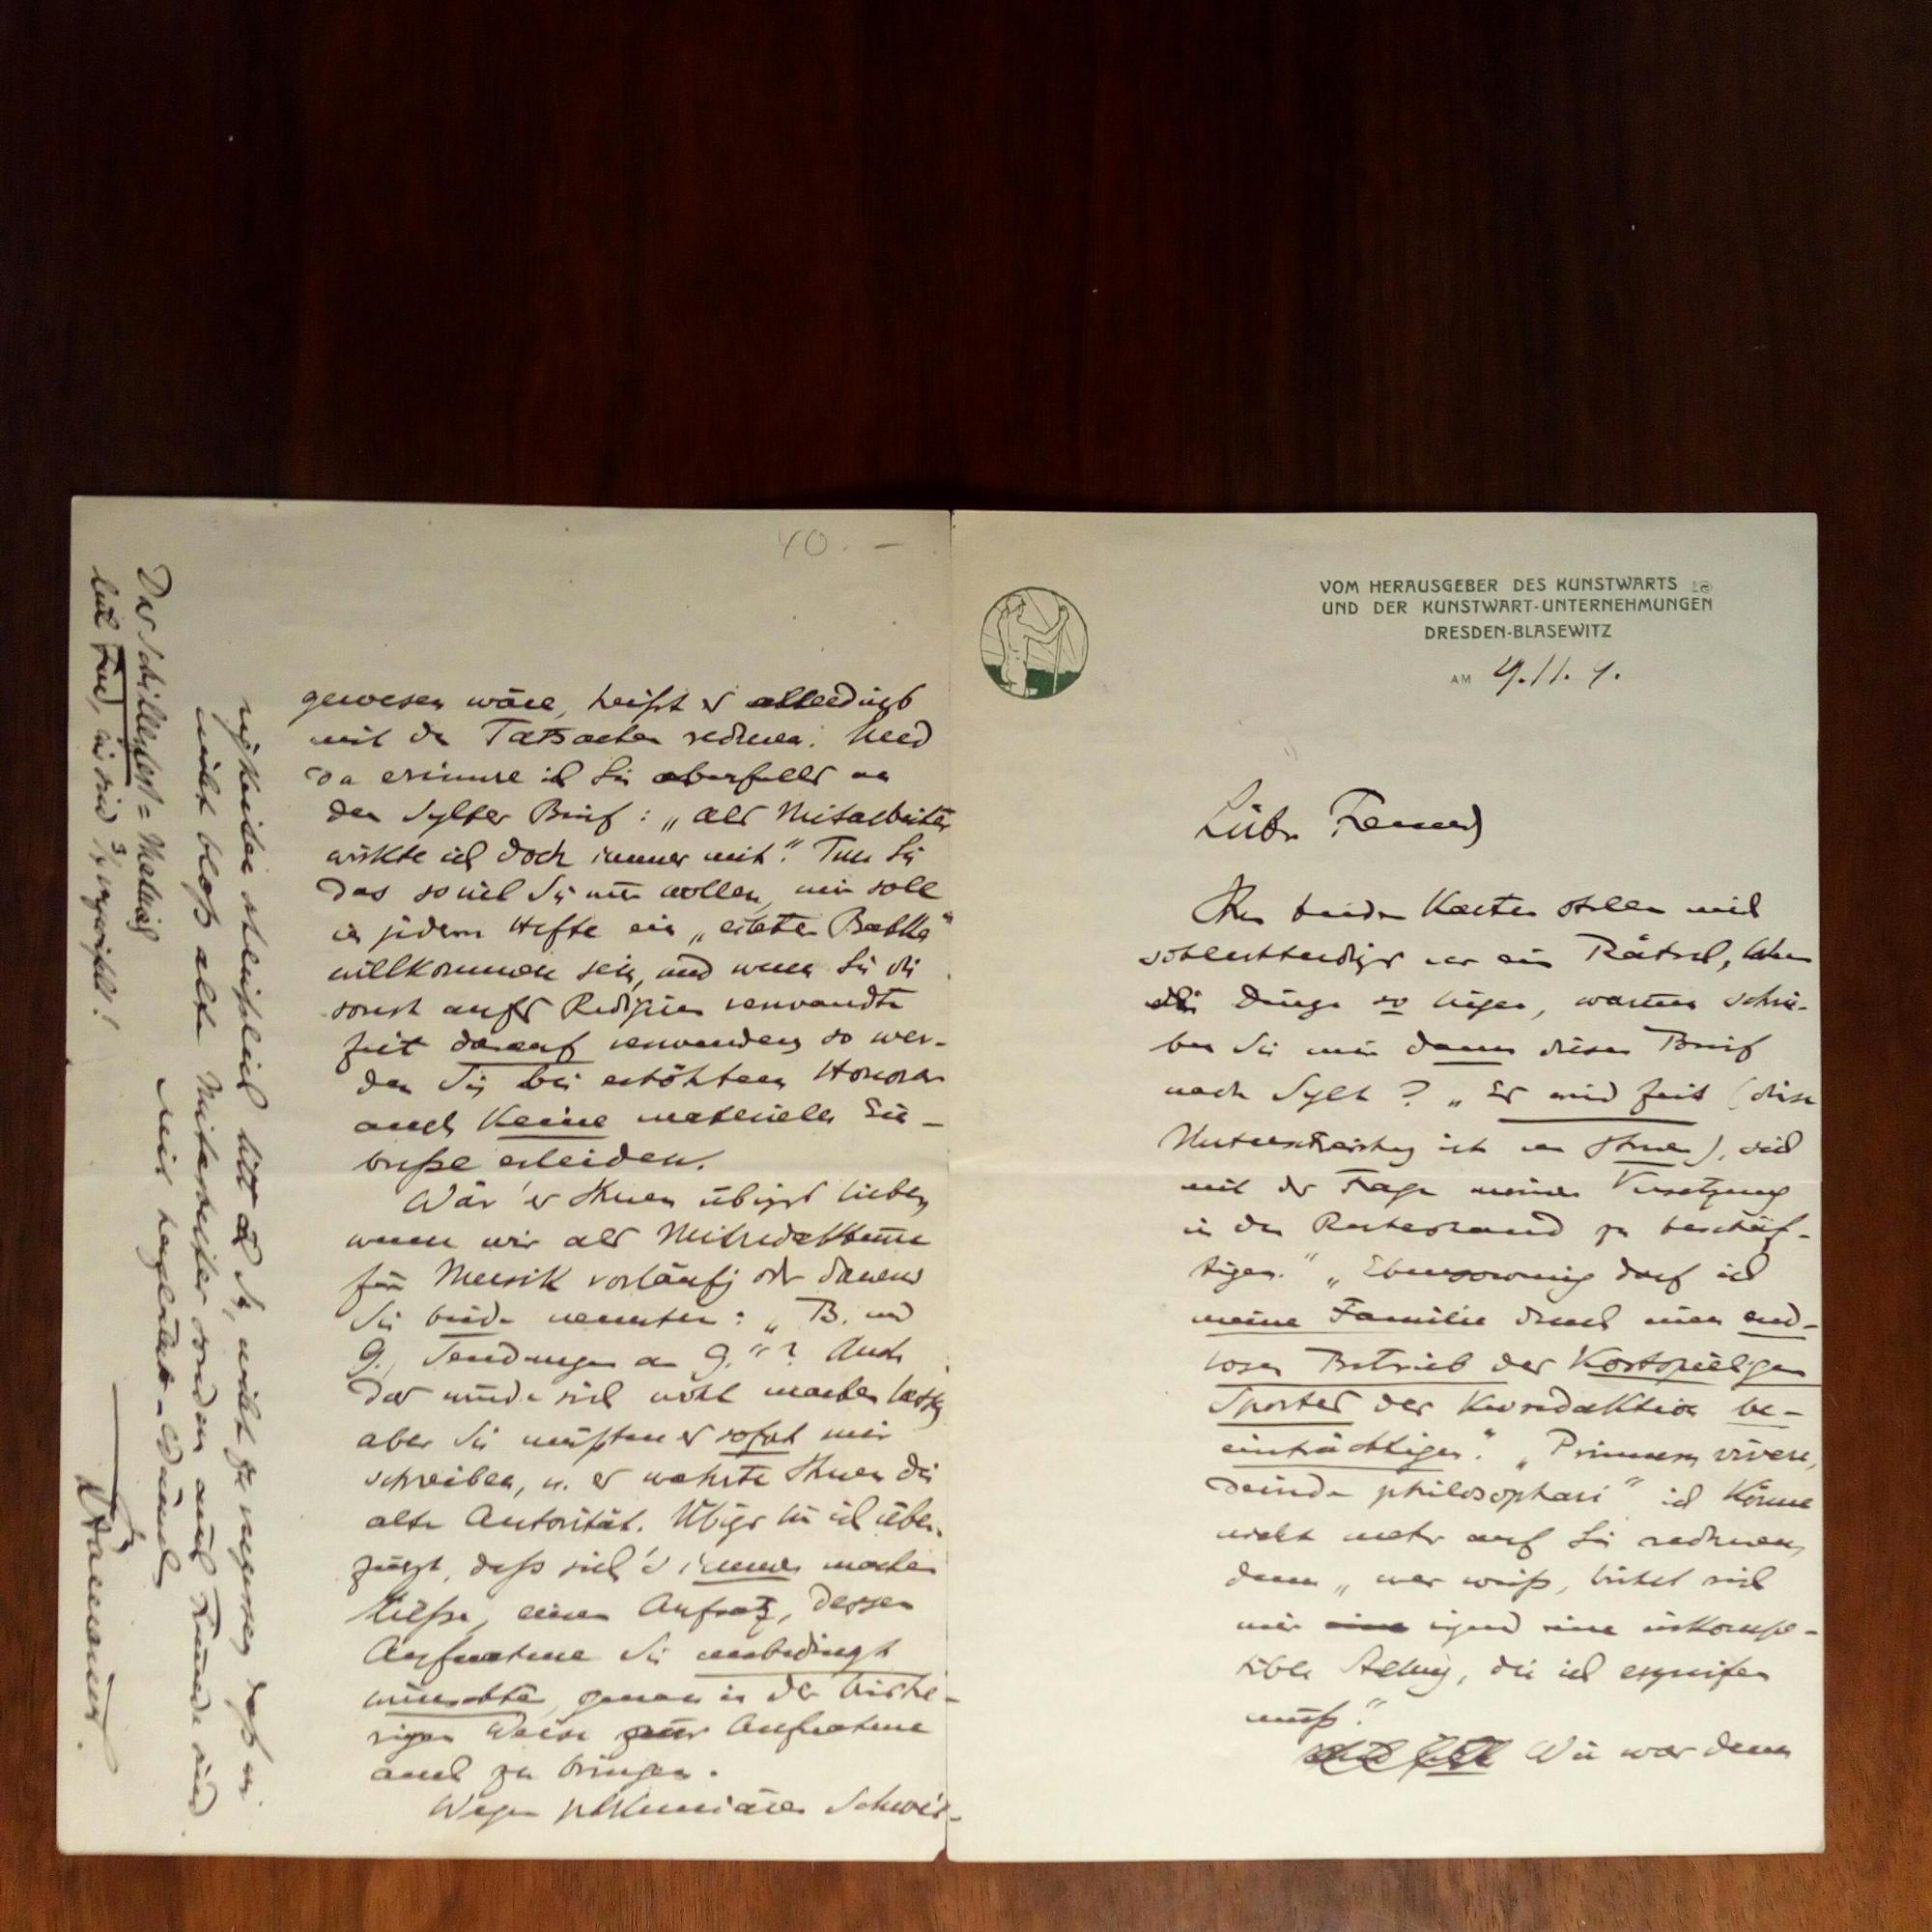 VOM HERAUSGEBER DES KUNSTWARTS
UND DER KUNSTWART-UNTERNEHMUNGEN
DRESDEN-BLASEWITZ
AM 9.11.
Lieber Freund
Ihre beiden Karten stellen mich
schlechterdings vor ein Rätsel, wenn
die Dinge so liegen, warum schrie-
ben Sie mir dann diesen Brief
nach Sylt? „Es wird Zeit (diese
Unterstreichung ist von Ihnen), sich
mit der Frage meiner Versetzung
in den Ruhestand zu beschäf-
tigen." „Ebensowenig darf ich
meine Familie durch einen end-
losen Betrieb des kostspieligen
Sportes der Korredaktion be-
einträchtigen." „Primum vivere,
deinde philosophari" ich könne
nicht mehr auf Sie rechnen,
denn „wer weiß, bietet sich
mir irgend eine inkompa-
tible Stellung, die ich ergreifen
muß."
Wie war denn
40.-
gewesen wäre, heißt es allerdings
mit den Tatsachen rechnen. Und
da erinnere ich Sie ebenfalls an
den Sylter Brief: „als Mitarbeiter
wirkte ich doch immer mit." Tun Sie
das soviel Sie nur wollen, mir soll
in jedem Hefte ein „echter Batka"
willkommen sein, und wenn Sie die
sonst aufs Redigieren verwandte
Zeit darauf verwenden, so wer-
den Sie bei erhöhtem Honorar
auch keine materielle Ein-
buße erleiden.
Wär's Ihnen übrigens lieber,
wenn wir als Mitredakteure
für Musik vorläufig oder dauernd
Sie beide nennten: „B. und
G., Sendungen an G."? Auch
das würde sich wohl machen lassen,
aber Sie müßten es sofort mir
schreiben, u. es wahrte Ihnen die
alte Autorität. Übrigens bin ich über-
zeugt, daß sich's immer machen
ließe, einen Aufsatz, dessen
Aufnahme Sie unbedingt
wünschten, genau in der bishe-
rigen Weise zur Aufnahme
auch zu bringen.
Wegen pekuniärer Schwie-
rigkeiten schließlich bitt ich Sie, nicht zu vergessen, daß wir
nicht bloß alte Mitarbeiter sondern auch Freunde sind
mit herzlichstem Händedruck
Ihr
Avenarius
Das Schillerfest =